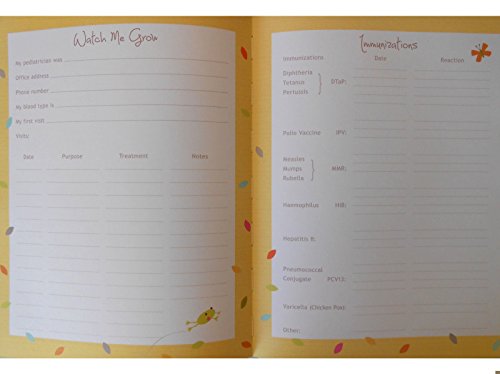 Watch Me Grow
My pediatrician was
Office address
Phone number
My blood type is
My first visit
Visits:
Date Purpose Treatment Notes
Immunizations
Immunizations Date Reaction
Diphtheria
Tetanus DTaP:
Pertussis
Polio Vaccine IPV:
Measles
Mumps MMR:
Rubella
Haemophilus HIB:
Hepatitis B:
Pneumococcal
Conjugate PCV13:
Varicella (Chicken Pox):
Other: